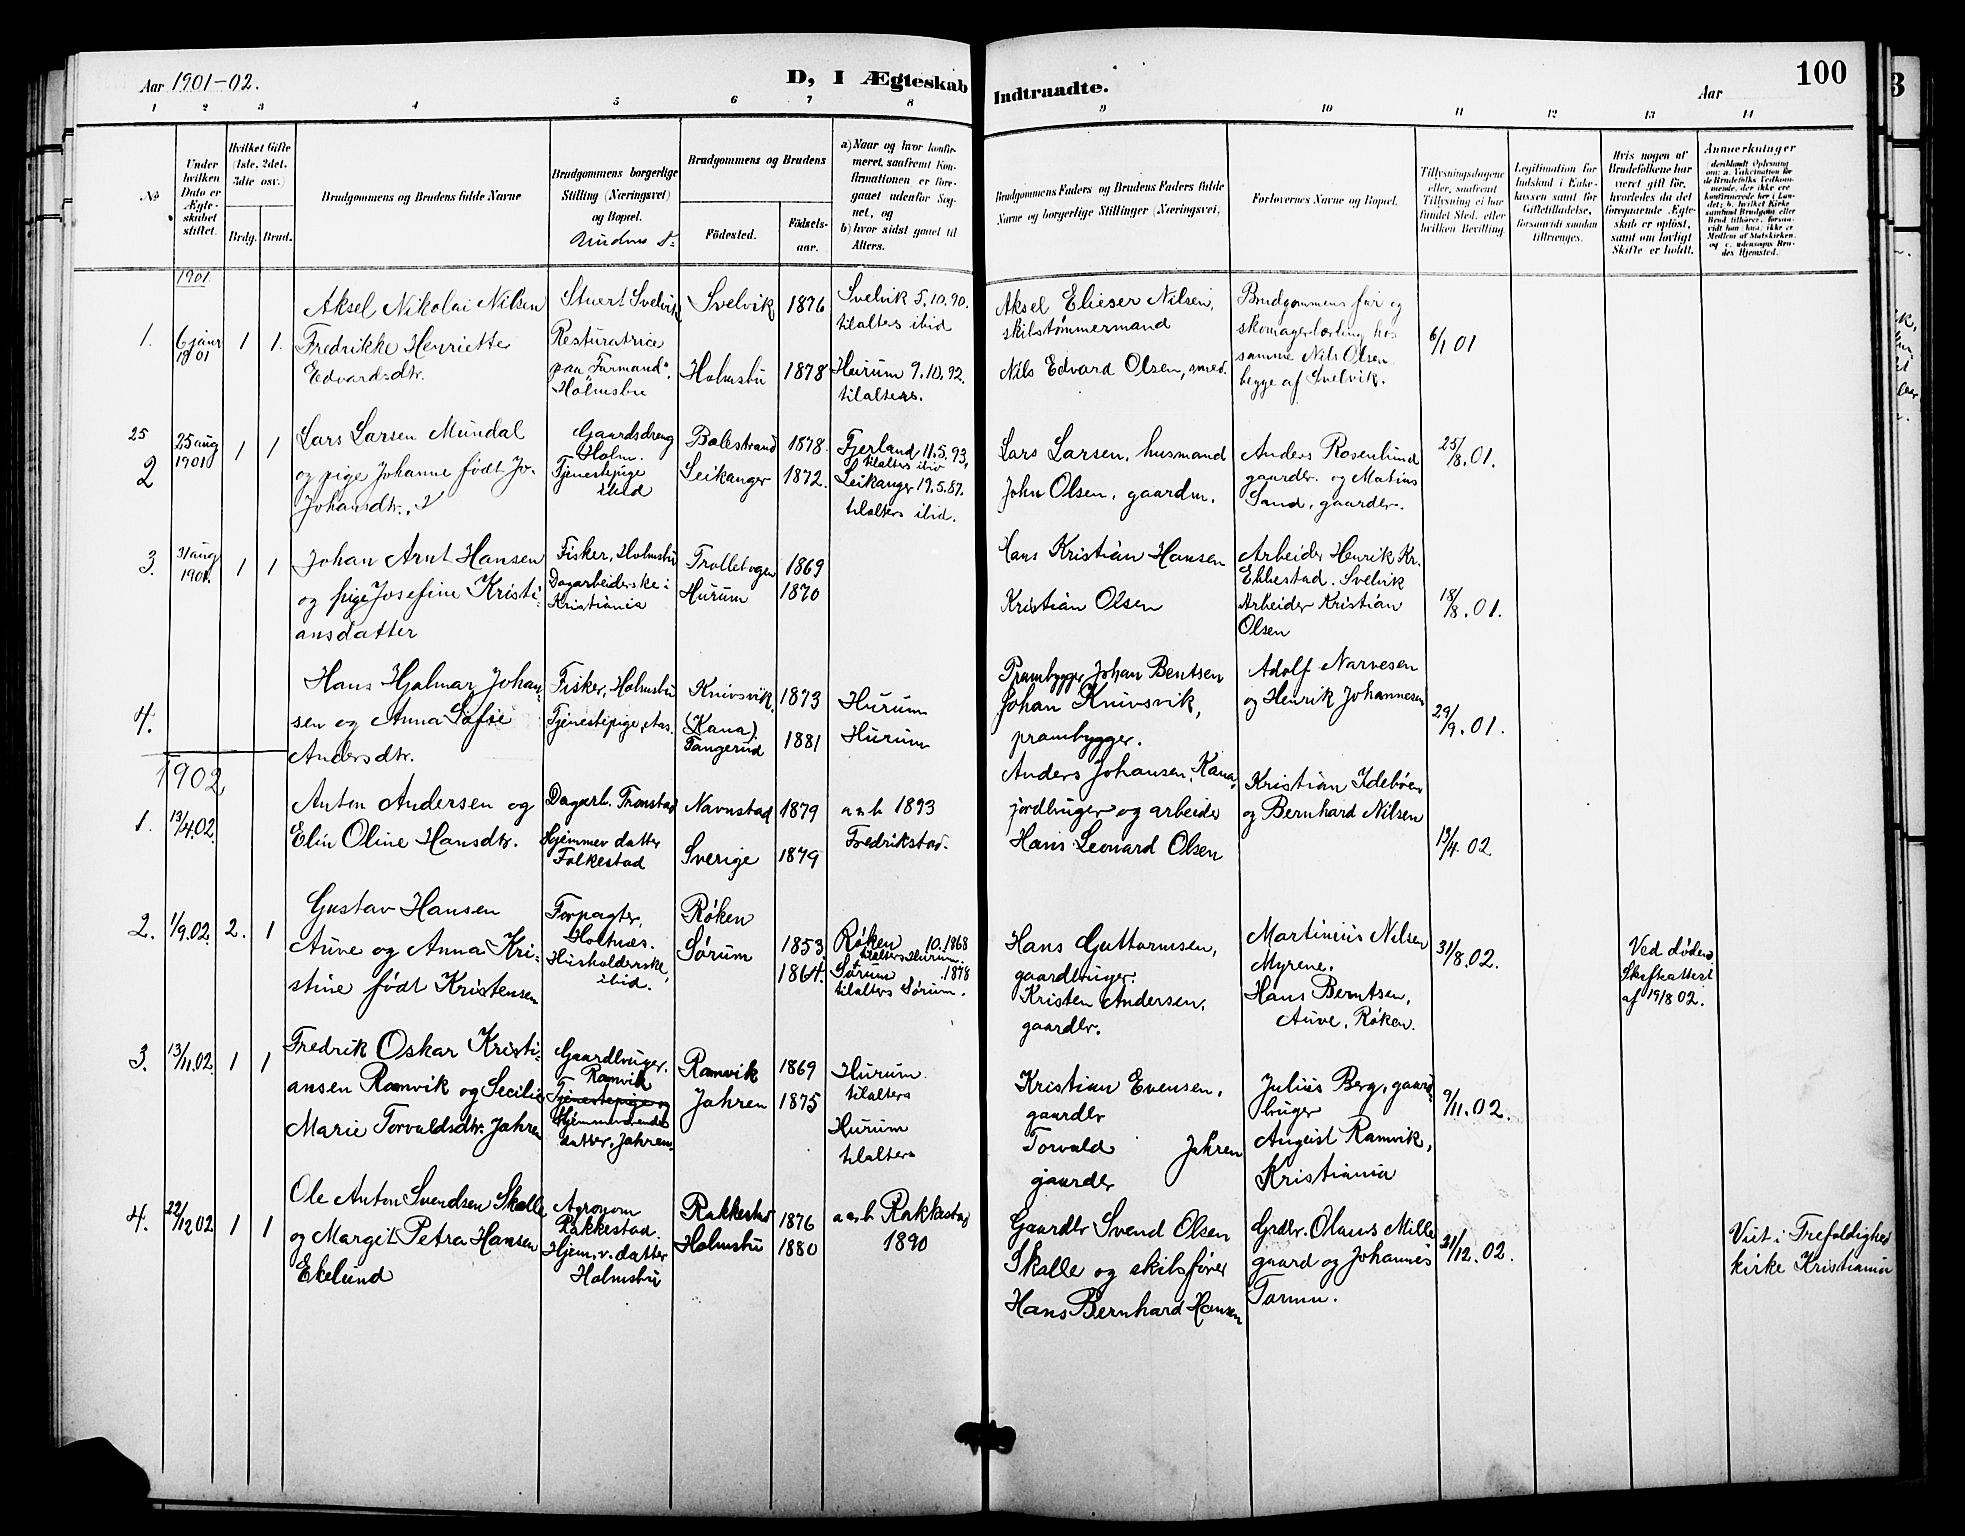 Aar 1901-02.
D, I Ægteskab Indtraadte.
Aar
100
1 2 3 4 5 6 7 8 9 10 11 12 13 14
No
Under hvilken Dato er Ægteskabet stiftet.
Hvilket Gifte (1ste, 2det, 3die osv.)
Brdg. Brud.
Brudgommens og Brudens fulde Navne
Brudgommens borgerlige Stilling (Næringsvei) og Bopæl.
Brudens d:
Brudgommens og Brudens
Fødested.
Fødsels-aar.
a) Naar og hvor konfirmeret, saafremt Konfirmationen er foregaaet udenfor Sognet, og
b) hvor sidst gaaet til Alters.
Brudgommens Faders og Brudens Faders fulde Navne og borgerlige Stillinger (Næringsvei,
Forlovernes Navne og Bopæl.
Tillysningsdagene eller, saafremt Tillysning ei har fundet Sted, efter hvilken Bevilling.
Legitimation for Indskud i Enkekassen samt for Giftetilladelse, forsaavidt saadan tiltrænges.
Hvis nogen af Brudefolkene har været gift før, hvorledes da det foregaaende Ægteskab er opløst, samt om lovligt Skifte er holdt.
Anmerkninger
1901
1.
6 janr 1901
1 1.
Aksel Nikolai Nilsen
Fredrikke Henriette
Edvardsdtr.
Stuert Svelvik
Resturatrice
paa Furmand.
Holmsbu
Svelvik 1876
Holmsbu 1878
Svelvik 5.10.90.
tilalters ibid
Hurum 9.10.92.
tilalters.
Aksel Elieser Nilsen,
skibstømmermand
Nils Edvard Olsen, smed.
Brudgommens far og
skomagerlærling hos
samme Nils Olsen
begge af Svelvik.
6/1 01
25
2
25 aug 1901
1 1
Lars Larsen Mundal
og pige Johanne født Jo-
Johansdtr.
Gaardsdreng
Holm.
Tjenestepige
ibid
Balestrand 1878.
Leikanger 1872.
Fjerland 11.5.93,
tilalters ibid
Leikanger 19.5.87.
tilalters ibid.
Lars Larsen, husmand
John Olsen, gaardm.
Anders Rosenlund
gaarder. og Matius
Sand, gaarder.
25/8.01.
3.
31 aug 1901.
1 1
Johan Arnt Hansen
og pige Josefine Kristi-
ansdatter
Fisker, Holmsbu
Dagarbeiderske i
Kristiania
Trolletvgen 1869
Hurum 1870
Hans Kristian Hansen
Kristian Olsen
Arbeider Henrik Kr.
Ebbestad. Svelvik
Arbeider Kristian
Olsen
18/8.01.
4.
Hans Hjalmar Johan-
sen og Anna Sofie
Andersdtr.
Fisker, Holmsbu
Tjenestepige, Aas.
Knivsvik. 1873
(Kana)
Tangerud 1881
Hurum
Hurum
Prambygger Johan Bentsen
Johan Knivsvik,
prambygger.
Anders Johansen, Kana,
jordbruger og arbeider
Adolf Narvesen
og Henrik Johannesen
29/9.01.
1902
1.
13/4.02.
Anton Andersen og
Elin Oline Hansdtr.
Dagarb. Tronstad
Hjemmev datter
Folkestad
Navnstad 1879
Sverige 1879
a og b 1893
Fredrikstad.
Hans Leonard Olsen
Kristian Idebøen
og Bernhard Nilsen
13/4.02
2.
1/9.02.
2. 1
Gustav Hansen
Auve og Anna Kri-
stine født Kristensen
Forpagter,
Holtnæs.
Husholderske,
ibid.
Røken
Sørum
1853.
1864.
Røken 10.1868
tilalters Hurum.
Sørum .1878
tilalters Sørum.
Hans Guttormsen,
gaardbruger.
Kristen Andersen,
gaardbr.
Martinius Nilsen
Myrene.
Hans Berntsen,
Auve, Røken.
31/8.02.
Ved døden.
Skifteattest
af 19/8 02.
3.
13/11.02.
1 1
Fredrik Oskar Kristi-
ansen Ramvik og Secilie
Marie Torvaldsdtr. Jahren
Gaardbruger.
Ramvik
Tjenestepige og
Hjemmeværende
datter, Jahren
Ramvik 1869
Jahren 1875
Hurum.
tilalters
Hurum
tilalters
Kristian Evensen,
gaardbr
Torvald Jahren
gaarder
Julius Berg, gaard-
bruger
August Ramvik,
Kristiania
9/11.02.
4.
22/12 02
1 1
Ole Anton Svendsen Skolle
og Margit Petra Hansen
Ekelund
Agronom
Rakkestad.
Hjem.v. datter
Holmsbu
Rakkestad 1876
Holmsbu 1880
a og b Rakkestad
1890
Gaardbr Svend Olsen
Skolle og skibsfører
Hans Bernhard Hansen
Grdbr. Olaus Mille
gaard og Johannes
Tormu.
21/12.02.
Viet i Trefoldighed
kirke Kristiania